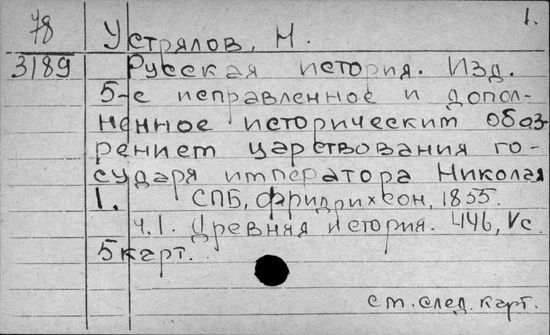 78
1.
Устрялов, Н.
3189
Русская история. Изд.
5-е исправленное и допол-
ненное историческим обоз-
рением царствования го-
сударя императора Николая
1. СПБ, Фридрихсон, 1855.
ч.1. Древняя история. 446, Vс.
5 карт.
см. след. карт.